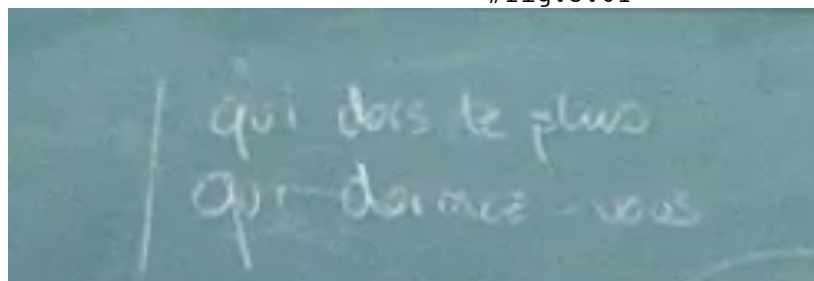 qui dors le plus
Qui dormez-vous